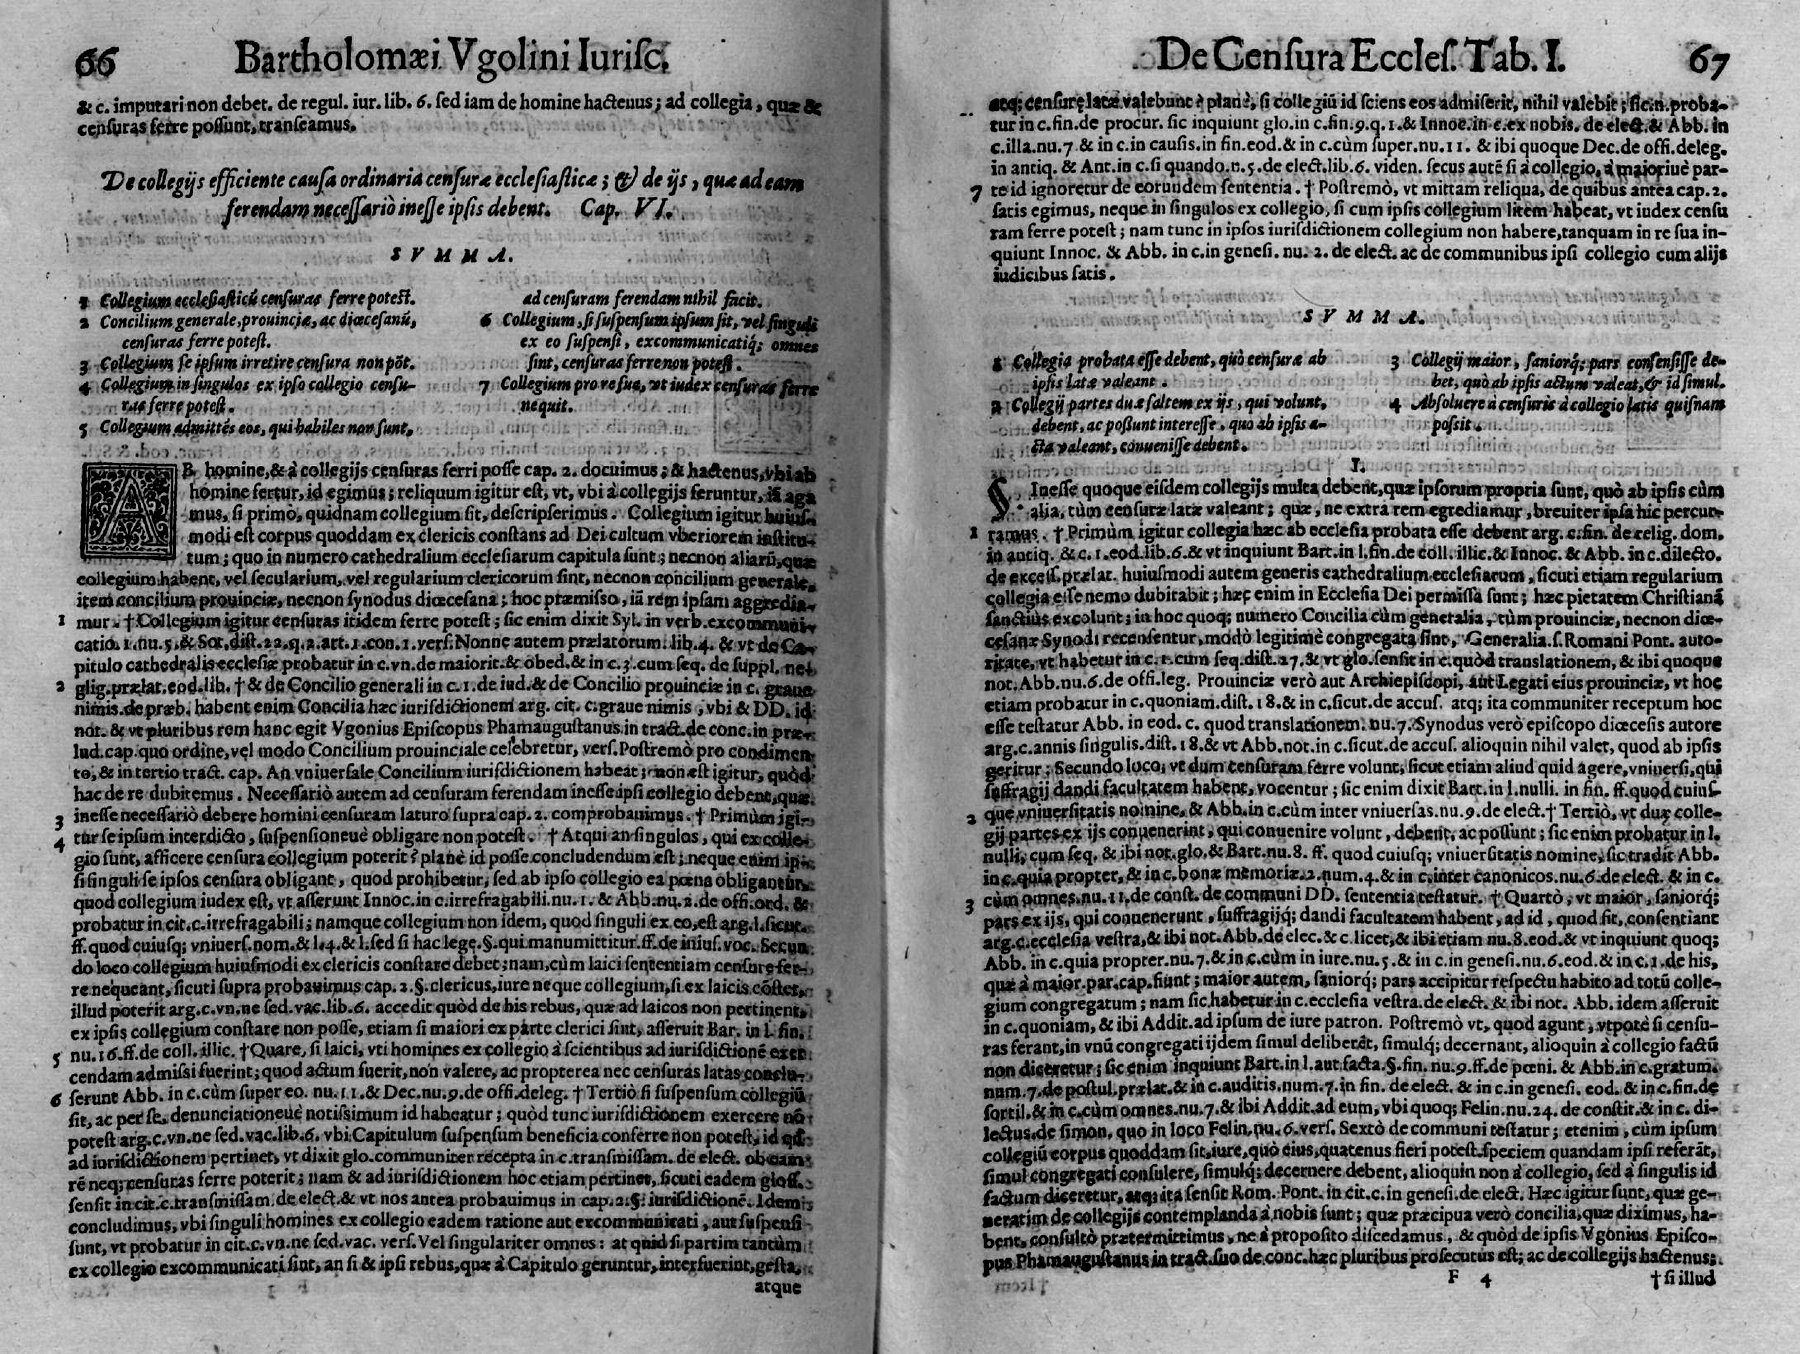 66 Bartholomæi Vgolini Iurisc.
& c. imputari non debet. de regul. iur. lib. 6. sed iam de homine hactenus; ad collegia, quæ &
censuras ferre possunt, transeamus.
De collegijs efficiente causa ordinaria censuræ ecclesiasticæ; & de ijs, quæ ad eam
ferendam necessariò inesse ipsis debent. Cap. VI.
SVMMA.
1 Collegium ecclesiasticū censuras ferre potest.
2 Concilium generale, prouinciæ, ac diœcesanū,
censuras ferre potest.
3 Collegium se ipsum irretire censura non põt.
4 Collegium in singulos ex ipso collegio censu-
ras ferre potest.
5 Collegium admittēs eos, qui habiles non sunt,
ad censuram ferendam nihil facit.
6 Collegium, si suspensum ipsum sit, vel singuli
ex eo suspensi, excommunicatiq; omnes
sint, censuras ferre non potest.
7 Collegium pro re sua, vt iudex censuras ferre
nequit.
AB homine, & à collegijs censuras ferri posse cap. 2. docuimus; & hactenus, vbi ab
homine fertur, id egimus; reliquum igitur est, vt, vbi à collegijs feruntur, iā aga
mus, si primò, quidnam collegium sit, descripserimus. Collegium igitur huius-
modi est corpus quoddam ex clericis constans ad Dei cultum vberiorem institu-
tum; quo in numero cathedralium ecclesiarum capitula sunt; necnon aliarū, quæ
collegium habent, vel secularium, vel regularium clericorum sint, necnon concilium generale,
item concilium prouinciæ, necnon synodus diœcesana; hoc præmisso, iā rem ipsam aggredia-
1 mur. † Collegium igitur censuras itidem ferre potest; sic enim dixit Syl. in verb. excommuni-
catio. 1. nu. 5. & Sot. dist. 22. q. 2. art. 1. con. 1. vers. Nonne autem prælatorum. lib. 4. & vt de Ca-
pitulo cathedralis ecclesiæ probatur in c. vn. de maiorit. & obed. & in c. 3. cum seq. de suppl. neg
2 glig. prælat. eod. lib. † & de Concilio generali in c. 1. de iud. & de Concilio prouinciæ in c. graue
nimis. de præb. habent enim Concilia hæc iurisdictionem arg. cit. c. graue nimis, vbi & DD. id
not. & vt pluribus rem hanc egit Vgonius Episcopus Phamaugustanus in tract. de conc. in præ-
lud. cap. quo ordine, vel modo Concilium prouinciale celebretur, vers. Postremò pro condimen
to, & in tertio tract. cap. An vniuersale Concilium iurisdictionem habeat; non est igitur, quòd
hac de re dubitemus. Necessariò autem ad censuram ferendam inesse ipsi collegio debent, quæ
3 inesse necessariò debere homini censuram laturo supra cap. 2. comprobauimus. † Primùm igi-
4 tur se ipsum interdicto, suspensioneuè obligare non potest. † Atqui an singulos, qui ex colle-
gio sunt, afficere censura collegium poterit? planè id posse concludendum est; neque enim ip-
si singuli se ipsos censura obligant, quod prohibetur, sed ab ipso collegio ea pœna obligantur,
quod collegium iudex est, vt asserunt Innoc. in c. irrefragabili. nu. 1. & Abb. nu. 2. de offi. ord. &
probatur in cit. c. irrefragabili; namque collegium non idem, quod singuli ex eo, est arg. l. sicut.
ff. quod cuiusq; vniuers. nom. & l. 4. & l. sed si hac lege. §. qui manumittitur. ff. de in ius. voc. Secun
do loco collegium huiusmodi ex clericis constare debet; nam, cùm laici sententiam censuræ fer-
re nequeant, sicuti supra probauimus cap. 2. §. clericus, iure neque collegium, si ex laicis cōstet,
illud poterit arg. c. vn. ne sed. vac. lib. 6. accedit quòd de his rebus, quæ ad laicos non pertinent,
ex ipsis collegium constare non posse, etiam si maiori ex parte clerici sint, asseruit Bar. in l. fin.
5 nu. 16. ff. de coll. illic. † Quare, si laici, vti homines ex collegio à scientibus ad iurisdictionē exer
cendam admissi fuerint; quod actum fuerit, non valere, ac propterea nec censuras latas conclu-
6 serunt Abb. in c. cùm super eo. nu. 11. & Dec. nu. 9. de offi. deleg. † Tertiò si suspensum collegiū
sit, ac per se, denunciationeuè notissimum id habeatur; quòd tunc iurisdictionem exercere nō
potest arg. c. vn. ne sed. vac. lib. 6. vbi Capitulum suspensum beneficia conferre non potest, id qđ
ad iurisdictionem pertinet, vt dixit glo. communiter recepta in c. transmissam. de elect. ob eam
rē neq; censuras ferre poterit; nam & ad iurisdictionem hoc etiam pertinet, sicuti eadem gloss.
sensit in cit. c. transmissam. de elect. & vt nos antea probauimus in cap. 2. §. iurisdictionē. Idem
concludimus, vbi singuli homines ex collegio eadem ratione aut excommunicati, aut suspensi
sunt, vt probatur in cit. c. vn. ne sed. vac. vers. Vel singulariter omnes: at quid si partim tantùm
ex collegio excommunicati sint, an si & ipsi rebus, quæ à Capitulo geruntur, interfuerint, gesta,
atque
De Censura Eccles. Tab. I. 67
atq; censuræ latæ valebunt? planè, si collegiū id sciens eos admiserit, nihil valebit; sic.n. proba-
tur in c. fin. de procur. sic inquiunt glo. in c. fin. 9. q. 1. & Innoc. in c. ex nobis. de elect. & Abb. in
c. illa. nu. 7. & in c. in causis. in fin. eod. & in c. cùm super. nu. 11. & ibi quoque Dec. de offi. deleg.
in antiq. & Ant. in c. si quando. n. 5. de elect. lib. 6. viden. secus autē si à collegio, à maioriuè par-
7 te id ignoretur de eorundem sententia. † Postremò, vt mittam reliqua, de quibus antea cap. 2.
satis egimus, neque in singulos ex collegio, si cum ipsis collegium litem habeat, vt iudex censu
ram ferre potest; nam tunc in ipsos iurisdictionem collegium non habere, tanquam in re sua in-
quiunt Innoc. & Abb. in c. in genesi. nu. 2. de elect. ac de communibus ipsi collegio cum alijs
iudicibus satis.
SVMMA.
1 Collegia probata esse debent, quò censuræ ab
ipsis latæ valeant.
2 Collegij partes duæ saltem ex ijs, qui volunt,
debent, ac possunt interesse, quo ab ipsis a-
cta valeant, conuenisse debent.
3 Collegij maior, saniorq; pars consensisse de-
bet, quò ab ipsis actum valeat, & id simul.
4 Absoluere à censuris à collegio latis quisnam
possit.
I.
SInesse quoque eisdem collegijs multa debent, quæ ipsorum propria sunt, quò ab ipsis cùm
alia, tùm censuræ latæ valeant; quæ, ne extra rem egrediamur, breuiter ipsa hic percur-
1 ramus. † Primùm igitur collegia hæc ab ecclesia probata esse debent arg. c. fin. de relig. dom.
in antiq. & c. 1. eod. lib. 6. & vt inquiunt Bart. in l. fin. de coll. illic. & Innoc. & Abb. in c. dilecto.
de excess. prælat. huiusmodi autem generis cathedralium ecclesiarum, sicuti etiam regularium
collegia esse nemo dubitabit; hæc enim in Ecclesia Dei permissa sunt; hæc pietatem Christianā
sanctius excolunt; in hoc quoq; numero Concilia cùm generalia, tùm prouinciæ, necnon diœ-
cesanæ Synodi recensentur, modò legitimè congregata sint, Generalia. s. Romani Pont. auto-
ritate, vt habetur in c. 1. cum seq. dist. 27. & vt glo. sensit in c. quòd translationem, & ibi quoque
not. Abb. nu. 6. de offi. leg. Prouinciæ verò aut Archiepiscopi, aut Legati eius prouinciæ, vt hoc
etiam probatur in c. quoniam. dist. 18. & in c. sicut. de accus. atq; ita communiter receptum hoc
esse testatur Abb. in eod. c. quod translationem. nu. 7. Synodus verò episcopo diœcesis autore
arg. c. annis singulis. dist. 18. & vt Abb. not. in c. sicut. de accus. alioquin nihil valet, quod ab ipsis
geritur; Secundo loco, vt dum censuram ferre volunt, sicut etiam aliud quid agere, vniuersi, qui
suffragij dandi facultatem habent, vocentur; sic enim dixit Bart. in l. nulli. in fin. ff. quod cuius-
2 que vniuersitatis nomine, & Abb. in c. cùm inter vniuersas. nu. 9. de elect. † Tertiò, vt duæ colle-
gij partes ex ijs conuenerint, qui conuenire volunt, debent, ac possunt; sic enim probatur in l.
nulli, cum seq. & ibi not. glo. & Bart. nu. 8. ff. quod cuiusq; vniuersitatis nomine, sic tradit Abb.
in c. quia propter, & in c. bonæ memoriæ. 2. num. 4. & in c. inter canonicos. nu. 6. de elect. & in c.
3 cùm omnes. nu. 11. de const. de communi DD. sententia testatur. † Quartò, vt maior, saniorq;
pars ex ijs, qui conuenerunt, suffragijq; dandi facultatem habent, ad id, quod fit, consentiant
arg. c. ecclesia vestra, & ibi not. Abb. de elec. & c. licet, & ibi etiam nu. 8. eod. & vt inquiunt quoq;
Abb. in c. quia propter. nu. 7. & in c. cùm in iure. nu. 5. & in c. in genesi. nu. 6. eod. & in c. 1. de his,
quæ à maior. par. cap. fiunt; maior autem, saniorq; pars accipitur respectu habito ad totū colle-
gium congregatum; nam sic habetur in c. ecclesia vestra. de elect. & ibi not. Abb. idem asseruit
in c. quoniam, & ibi Addit. ad ipsum de iure patron. Postremò vt, quod agunt, vtpotè si censu-
ras ferant, in vnū congregati ijdem simul deliberēt, simulq; decernant, alioquin à collegio factū
non diceretur; sic enim inquiunt Bart. in l. aut facta. §. fin. nu. 9. ff. de pœni. & Abb. in c. gratum.
num. 7. de postul. prælat. & in c. auditis. num. 7. in fin. de elect. & in c. in genesi. eod. & in c. fin. de
sortil. & in c. cùm omnes. nu. 7. & ibi Addit. ad eum, vbi quoq; Felin. nu. 24. de constit. & in c. di-
lectus. de simon. quo in loco Felin. nu. 6. vers. Sextò de communi testatur; etenim, cùm ipsum
collegiū corpus quoddam sit, iure, quò eius, quatenus fieri potest, speciem quandam ipsi referāt,
simul congregati consulere, simulq; decernere debent, alioquin non à collegio, sed à singulis id
factum diceretur, atq; ita sensit Rom. Pont. in cit. c. in genesi. de elect. Hæc igitur sunt, quæ ge-
neratim de collegijs contemplanda à nobis sunt; quæ præcipua verò concilia, quæ diximus, ha-
bent, consultò prætermittimus, ne à proposito discedamus, & quòd de ipsis Vgonius Episco-
pus Phamaugustanus in tract. suo de conc. hæc pluribus prosecutus est; ac de collegijs hactenus;
F 4 † si illud